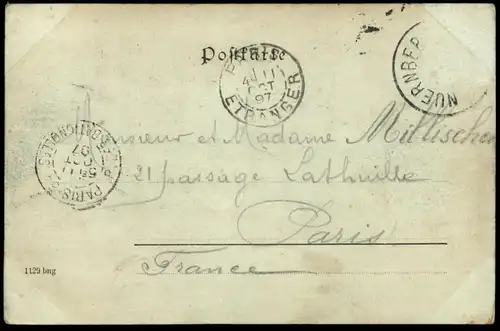 Postkarte
PARIS
4E 11
OCT
97
ETRANGER
NUERNBERG
PARIS
5E 11
OCT
97
DISTRIBUTION
Monsieur et Madame Millischer
21 passage Lathuille
Paris
France
1129 bmg